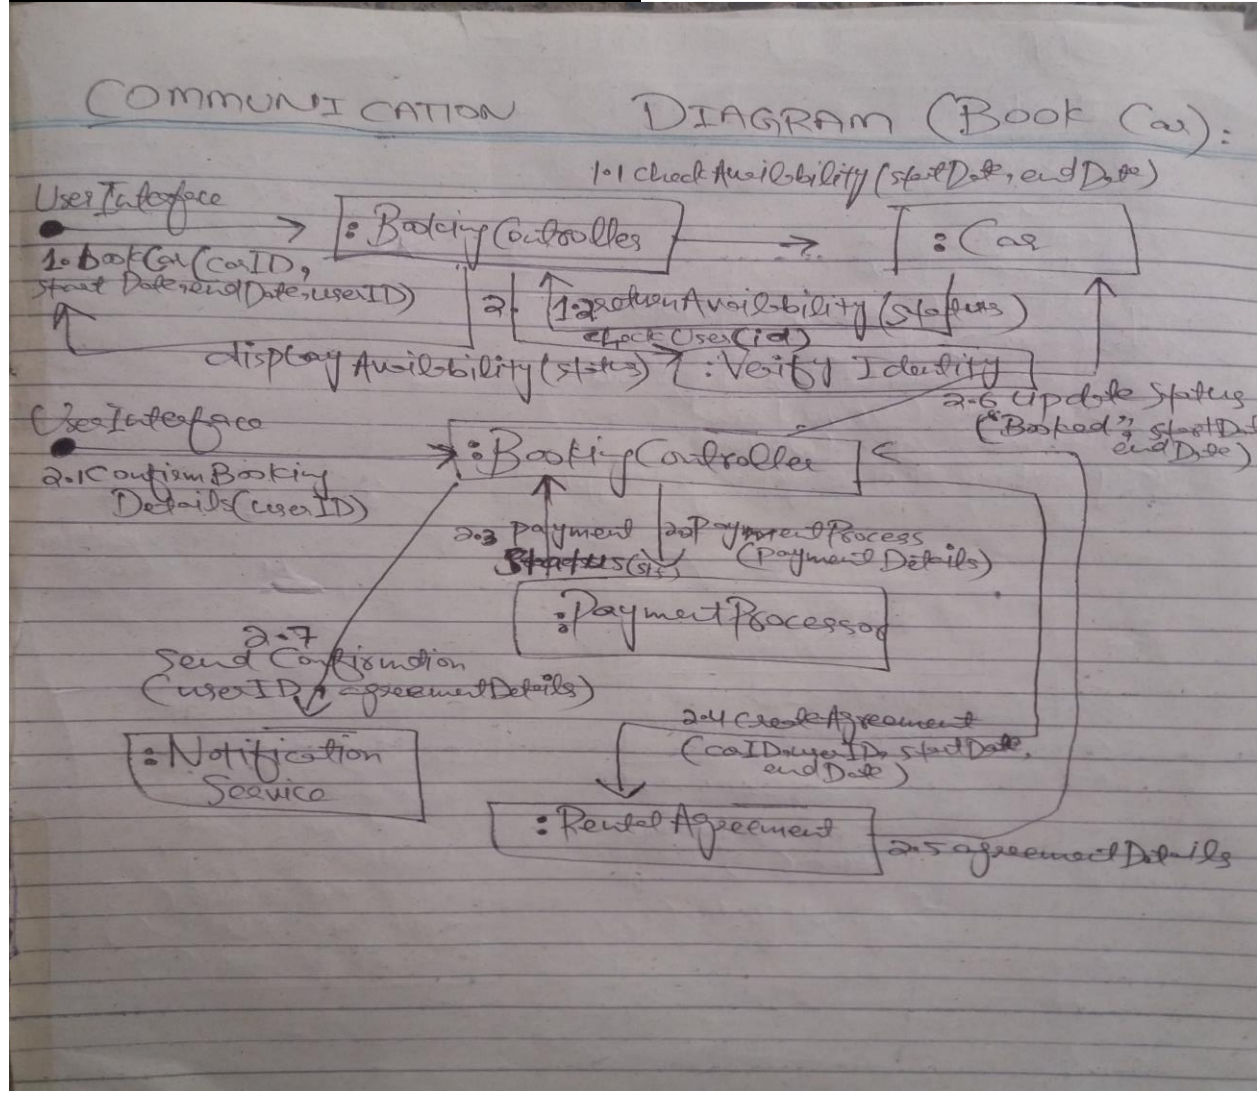 COMMUNICATION DIAGRAM (Book Car):
1.1 checkAvailbility(startDate, endDate)
UserInterface
:BookingController
:Car
1. bookCar(carID,
start Date, endDate, userID)
2
1.2 returnAvailbility(status)
checkUser(id)
displayAvailbility(status)
:Verify Identity
2.6 Update Status
("Booked", startDat
endDate)
UserInterface
:BookingController
2.1 Confirm Booking
Details(userID)
2.3 payment
2.2 PaymentProcess
(paymentDetails)
:PaymentProcessor
2.7
Send Confirmation
(userID, agreementDetails)
2.4 createAgreement
(carID, userID, startDate,
endDate)
:Notification
Service
:Rental Agreement
2.5 agreementDetails